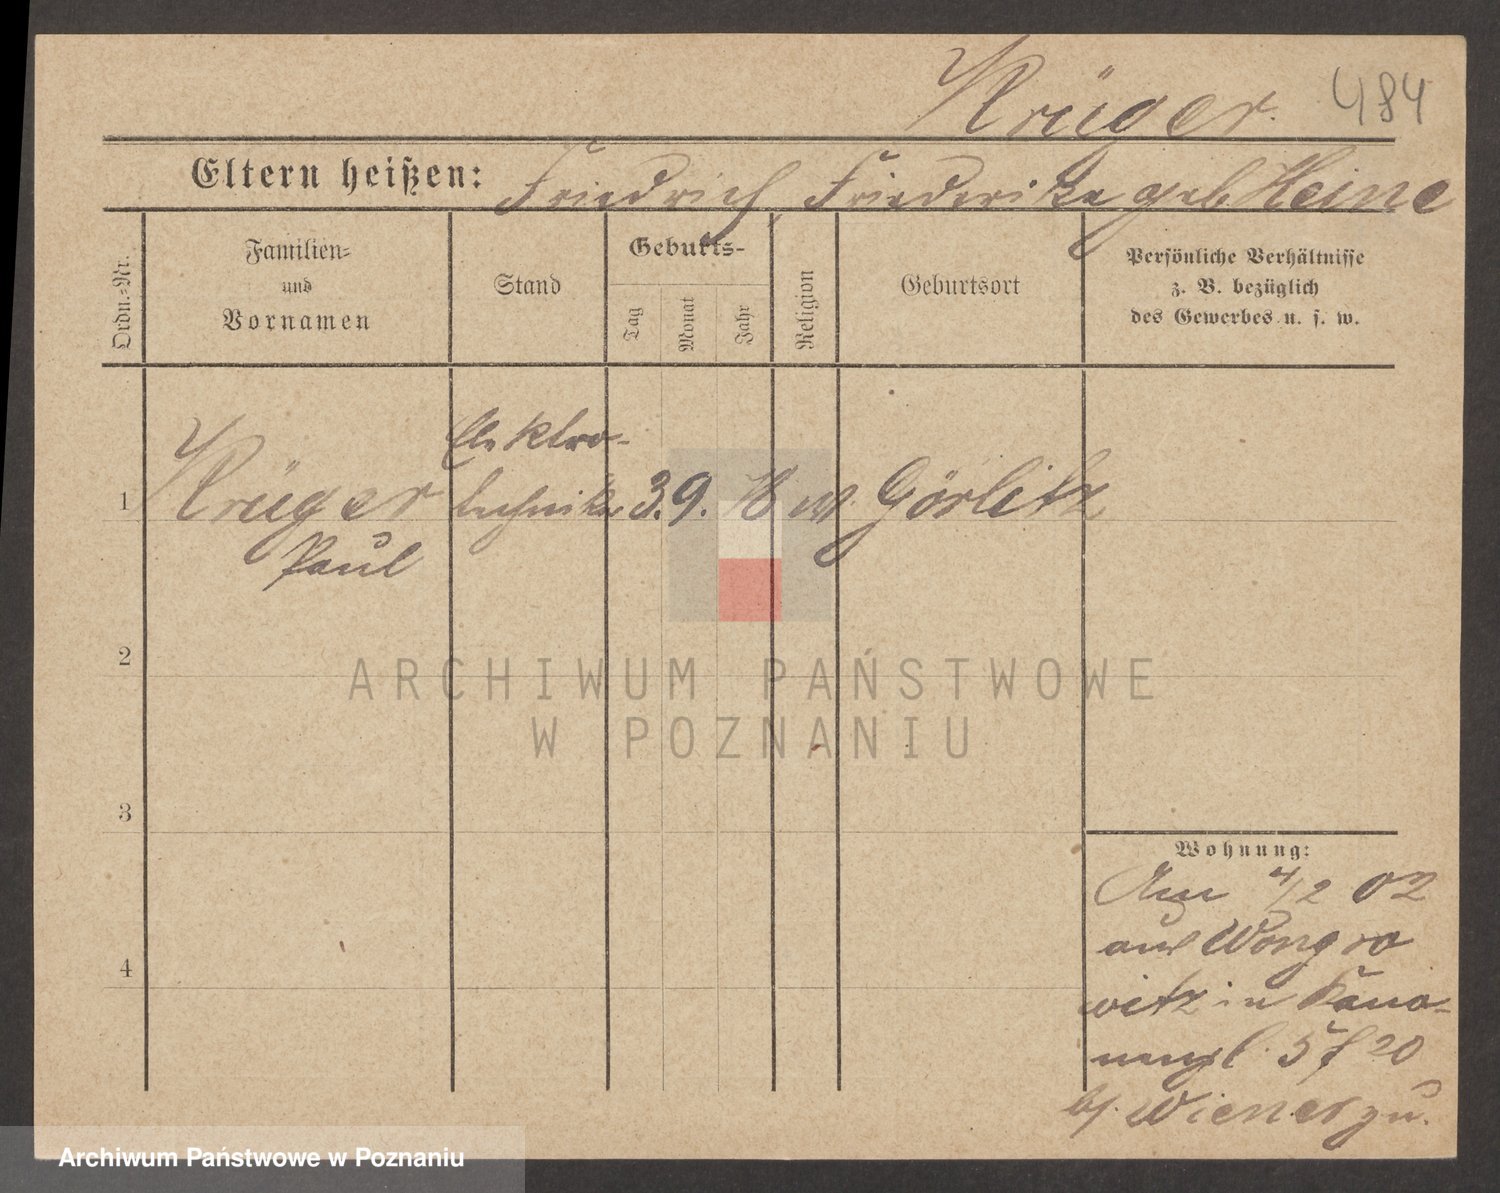 Krüger. 484
Eltern heißen: Friedrich Friederike geb Heine
Ordn.-Nr.
Familien-
und
Vornamen
Stand
Geburts-
Tag
Monat
Jahr
Religion
Geburtsort
Persönliche Verhältnisse
z. B. bezüglich
des Gewerbes u. s. w.
Elektro-
1 Krüger techniker 3. 9. 78 ev. Görlitz
Paul
2
3
4
Wohnung:
Am 4/2 02
aus Wongro
witz in Kano-
nenpl. 5
b/. Wiener zu.
ARCHIWUM PAŃSTWOWE
W POZNANIU
Archiwum Państwowe w Poznaniu